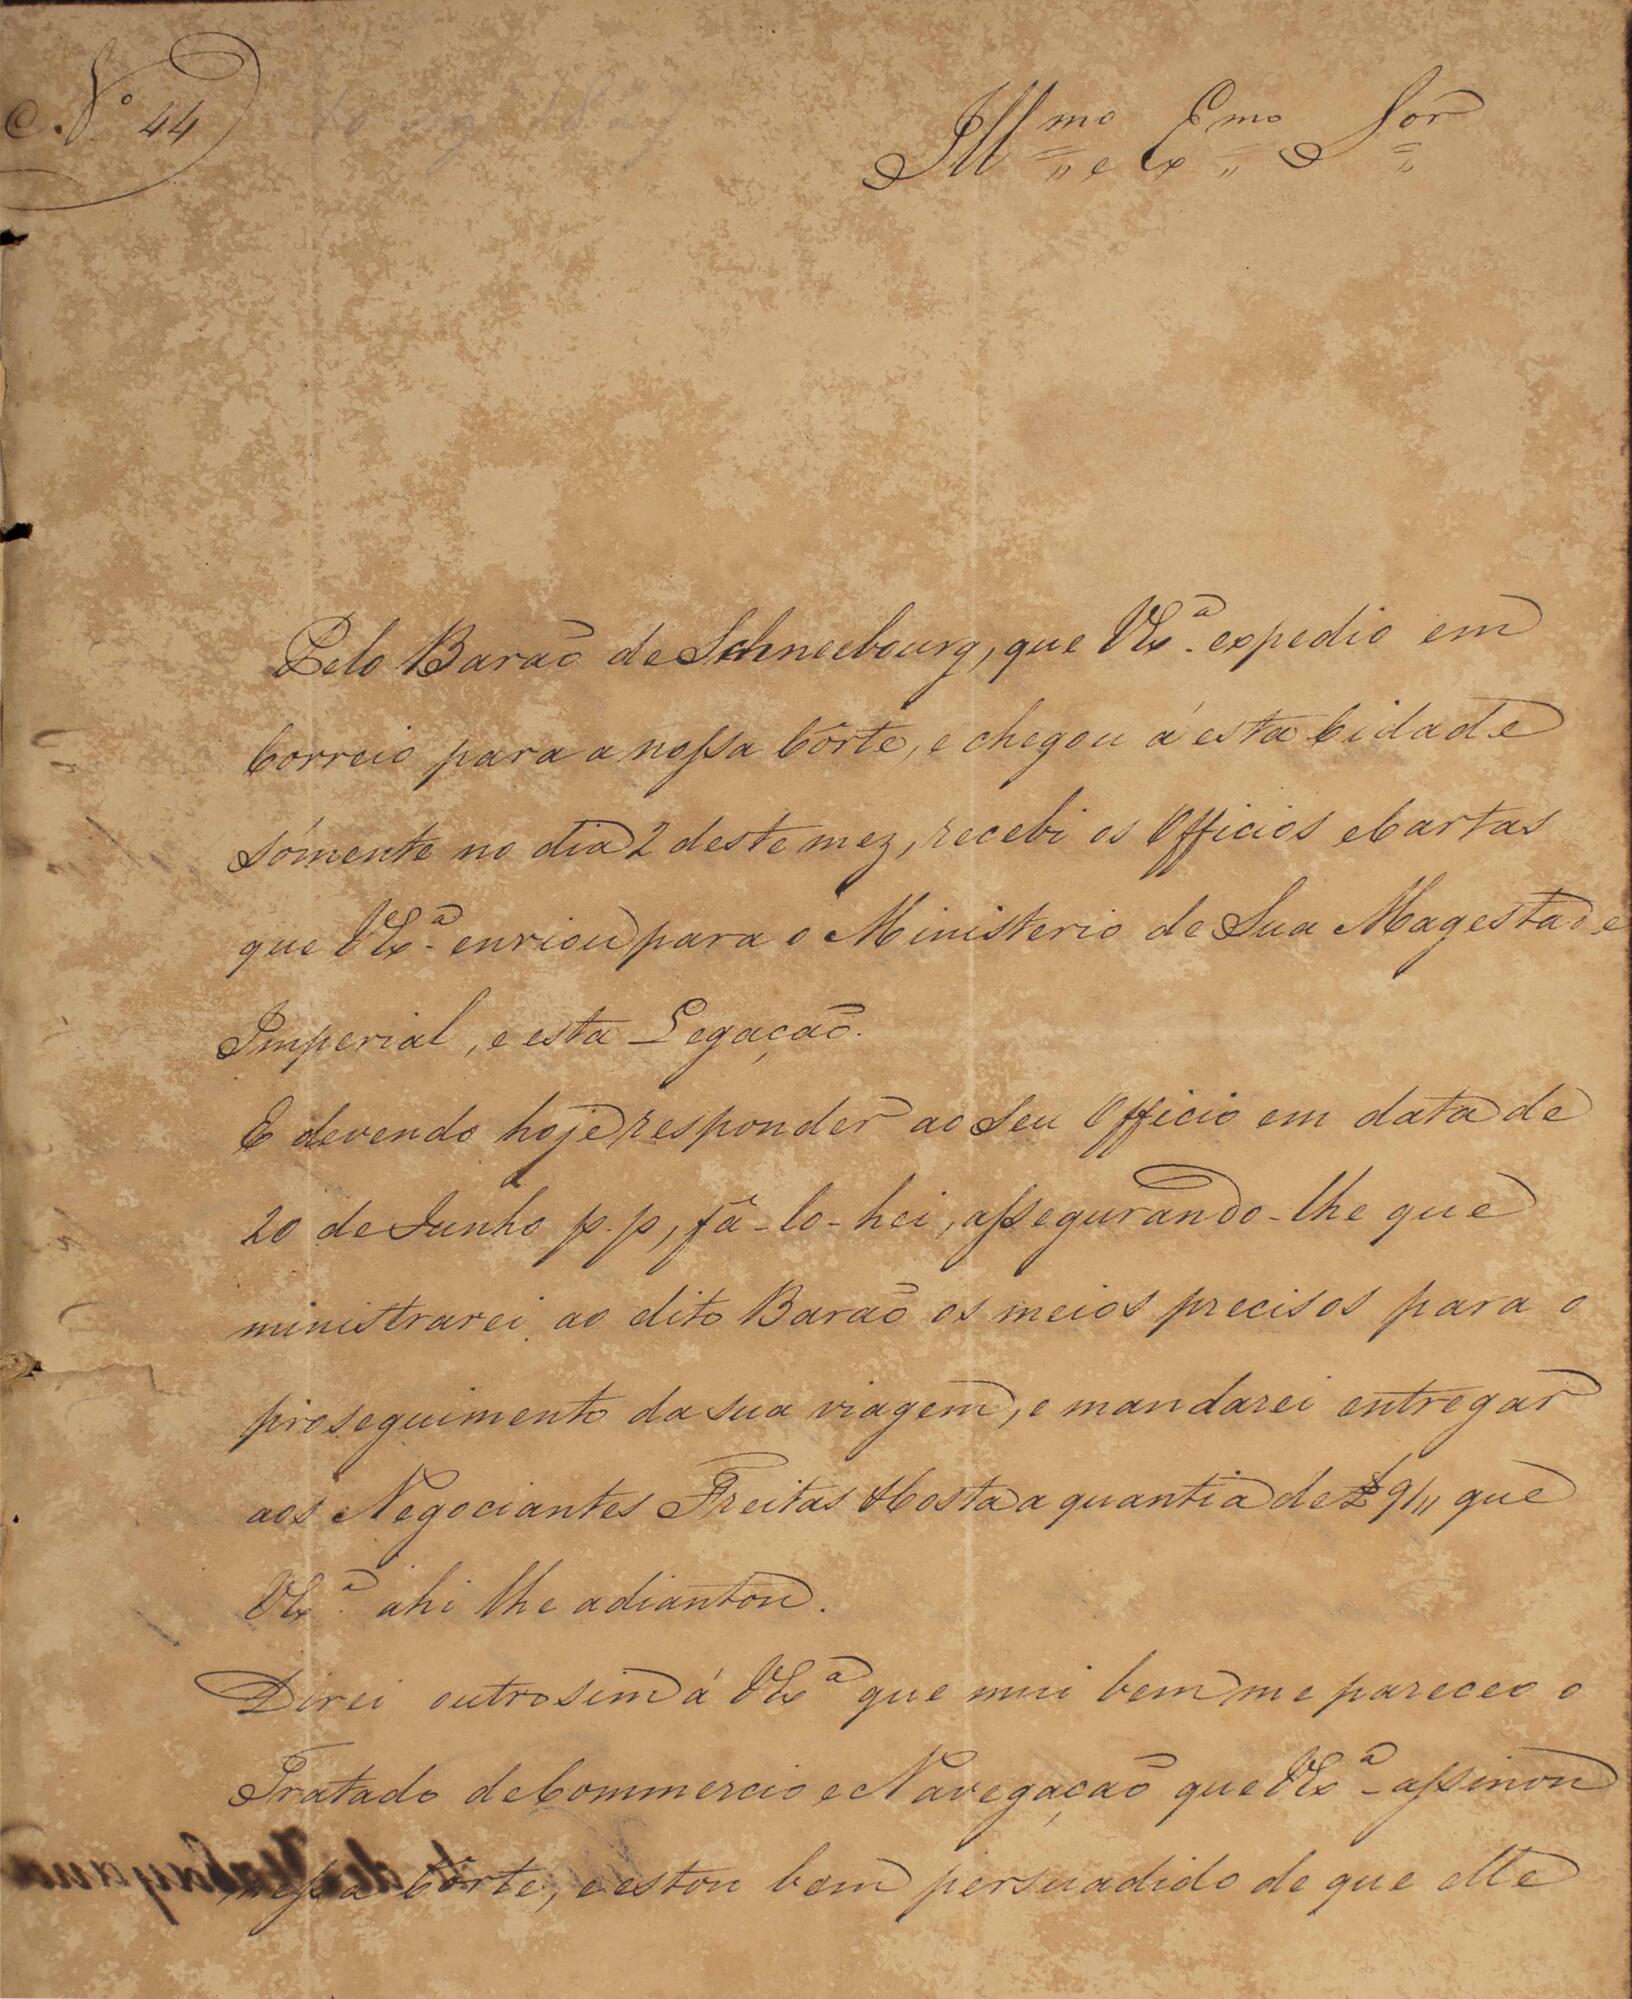 N.º 44
Ill.mo e Ex.mo Sor
Pelo Barão de Schneebourg, que VEx.ª expedio em
Correio para a nossa Côrte, e chegou á esta Cidade
sómente no dia 2 deste mez, recebi os Officios e Cartas
que VEx.ª enviou para o Ministerio de Sua Magestade
Imperial, e esta Legação.
E devendo hoje responder ao Seu Officio em data de
20 de Junho p.p, fâ-lo-hei, assegurando-lhe que
ministrarei ao dito Barão os meios precisos para o
proseguimento da sua viagem, e mandarei entregar
aos Negociantes Freitas & Costa a quantia de £ 9/,, que
VEx.ª ahi lhe adiantou.
Direi outrosim á VEx.ª que mui bem me pareceo o
Tratado de Commercio e Navegação que VEx.ª assinou
nessa Côrte, e estou bem persuadido de que elle